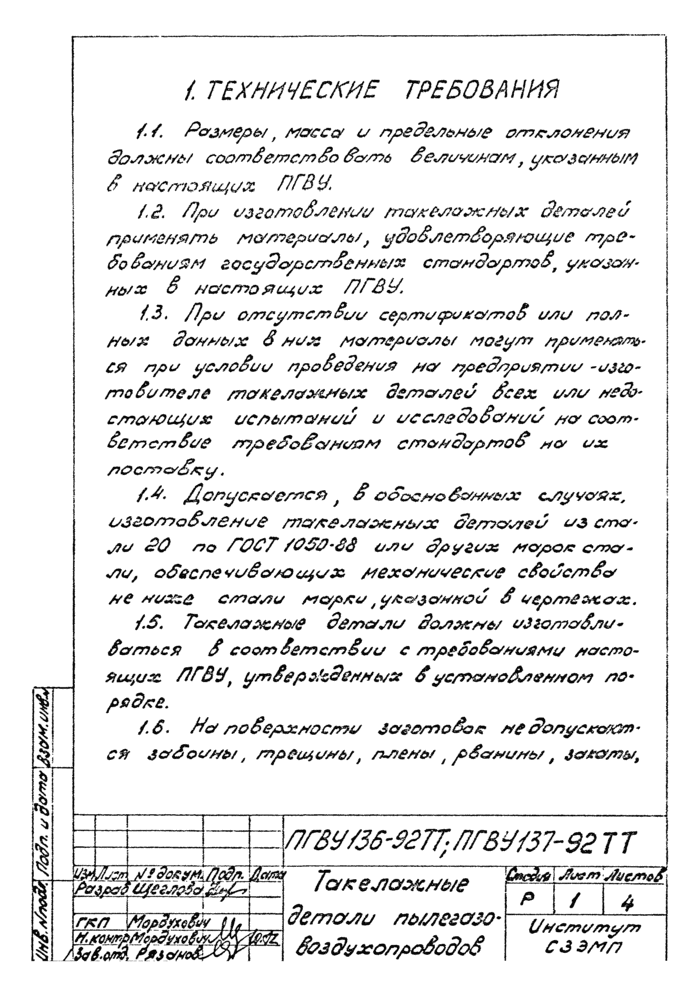 1. ТЕХНИЧЕСКИЕ ТРЕБОВАНИЯ
1.1. Размеры, масса и предельные отклонения
должны соответствовать величинам, указанным
в настоящих ПГВУ.
1.2. При изготовлении такелажных деталей
применять материалы, удовлетворяющие тре-
бованиям государственных стандартов, указан-
ных в настоящих ПГВУ.
1.3. При отсутствии сертификатов или пол-
ных данных в них материалы могут применять-
ся при условии проведения на предприятии-изго-
товителе такелажных деталей всех или недо-
стающих испытаний и исследований на соот-
ветствие требованиям стандартов на их
поставку.
1.4. Допускается, в обоснованных случаях,
изготовление такелажных деталей из ста-
ли 20 по ГОСТ 1050-88 или других марок ста-
ли, обеспечивающих механические свойства
не ниже стали марки, указанной в чертежах.
1.5. Такелажные детали должны изготавли-
ваться в соответствии с требованиями насто-
ящих ПГВУ, утвержденных в установленном по-
рядке.
1.6. На поверхности заготовок не допускают-
ся забоины, трещины, плены, рванины, закаты,
Взам. инв.
Подп. и дата
Инв. № подл
ПГВУ136-92ТТ; ПГВУ137-92ТТ
Изм. Лист № докум. Подп. Дата
Разраб Щеглова
ГКП Мордухович
Н.контр Мордухович 10.92
Зав.отд. Рязанов
Такелажные
детали пылегазо-
воздухопроводов
Стадия Лист Листов
Р 1 4
Институт
СЗЭМП